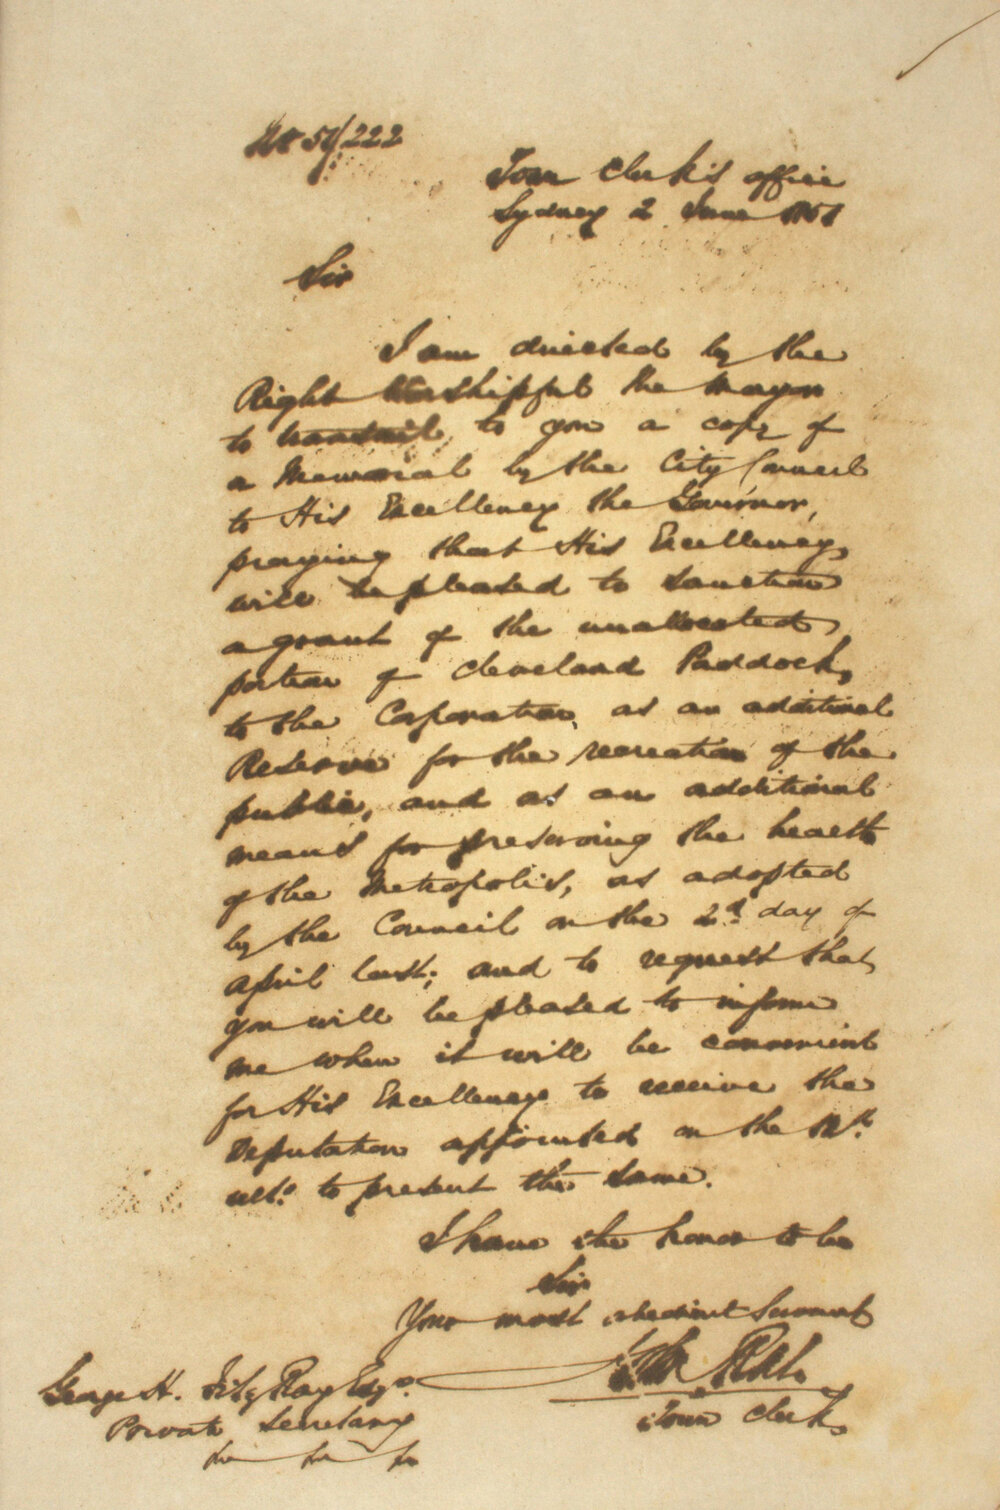 51/222
Town Clerk's office
Sydney 2 June 1851
Sir
I am directed by the
Right Worshipful the Mayor
to transmit to you a copy of
a Memorial by the City Council
to His Excellency the Governor,
praying that His Excellency
will be pleased to sanction
a grant of the unallocated
portion of Cleveland Paddock,
to the Corporation, as an additional
Reserve for the recreation of the
public, and as an additional
means for preserving the health
of the Metropolis, as adopted
by the Council on the 2d. day of
April last; and to request that
you will be pleased to inform
me when it will be convenient
for His Excellency to receive the
Deputation appointed on the 12th.
ulto. to present the same.
I have the honor to be
Sir
Your most obedient Servant
George H. FitzRoy Esqr.
Town Clerk
Private Secretary
&c &c &c